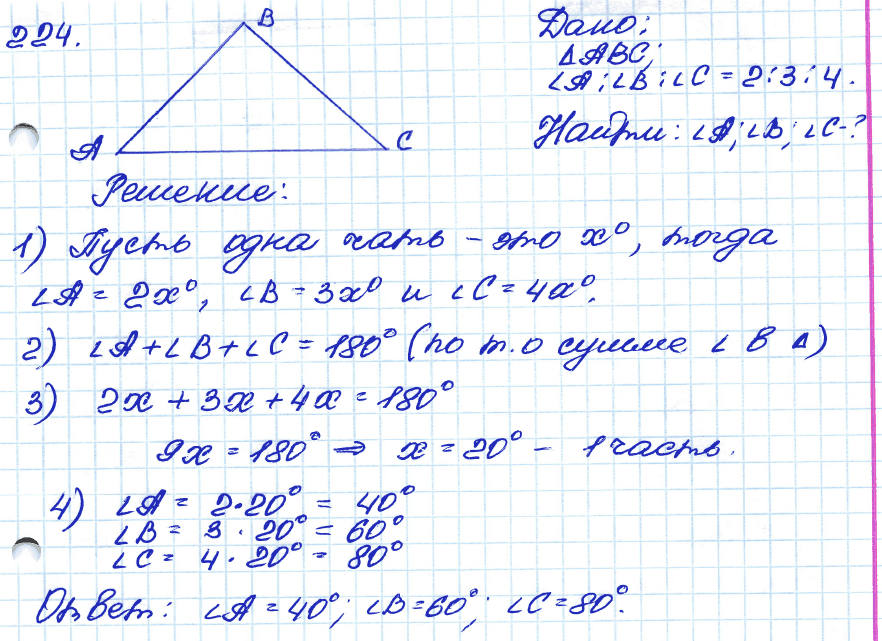 224.
B
A
C
Дано:
ΔABC;
∠A:∠B:∠C = 2:3:4.
Найти: ∠A; ∠B; ∠C-?
Решение:
1) Пусть одна чать - это x°, тогда
∠A = 2x°, ∠B = 3x° и ∠C = 4x°.
2) ∠A + ∠B + ∠C = 180° (по т.о сумме ∠ в Δ)
3) 2x + 3x + 4x = 180°
9x = 180° ⇒ x = 20° - 1 часть.
4) ∠A = 2·20° = 40°
∠B = 3·20° = 60°
∠C = 4·20° = 80°
Ответ: ∠A = 40°; ∠B = 60°; ∠C = 80°.